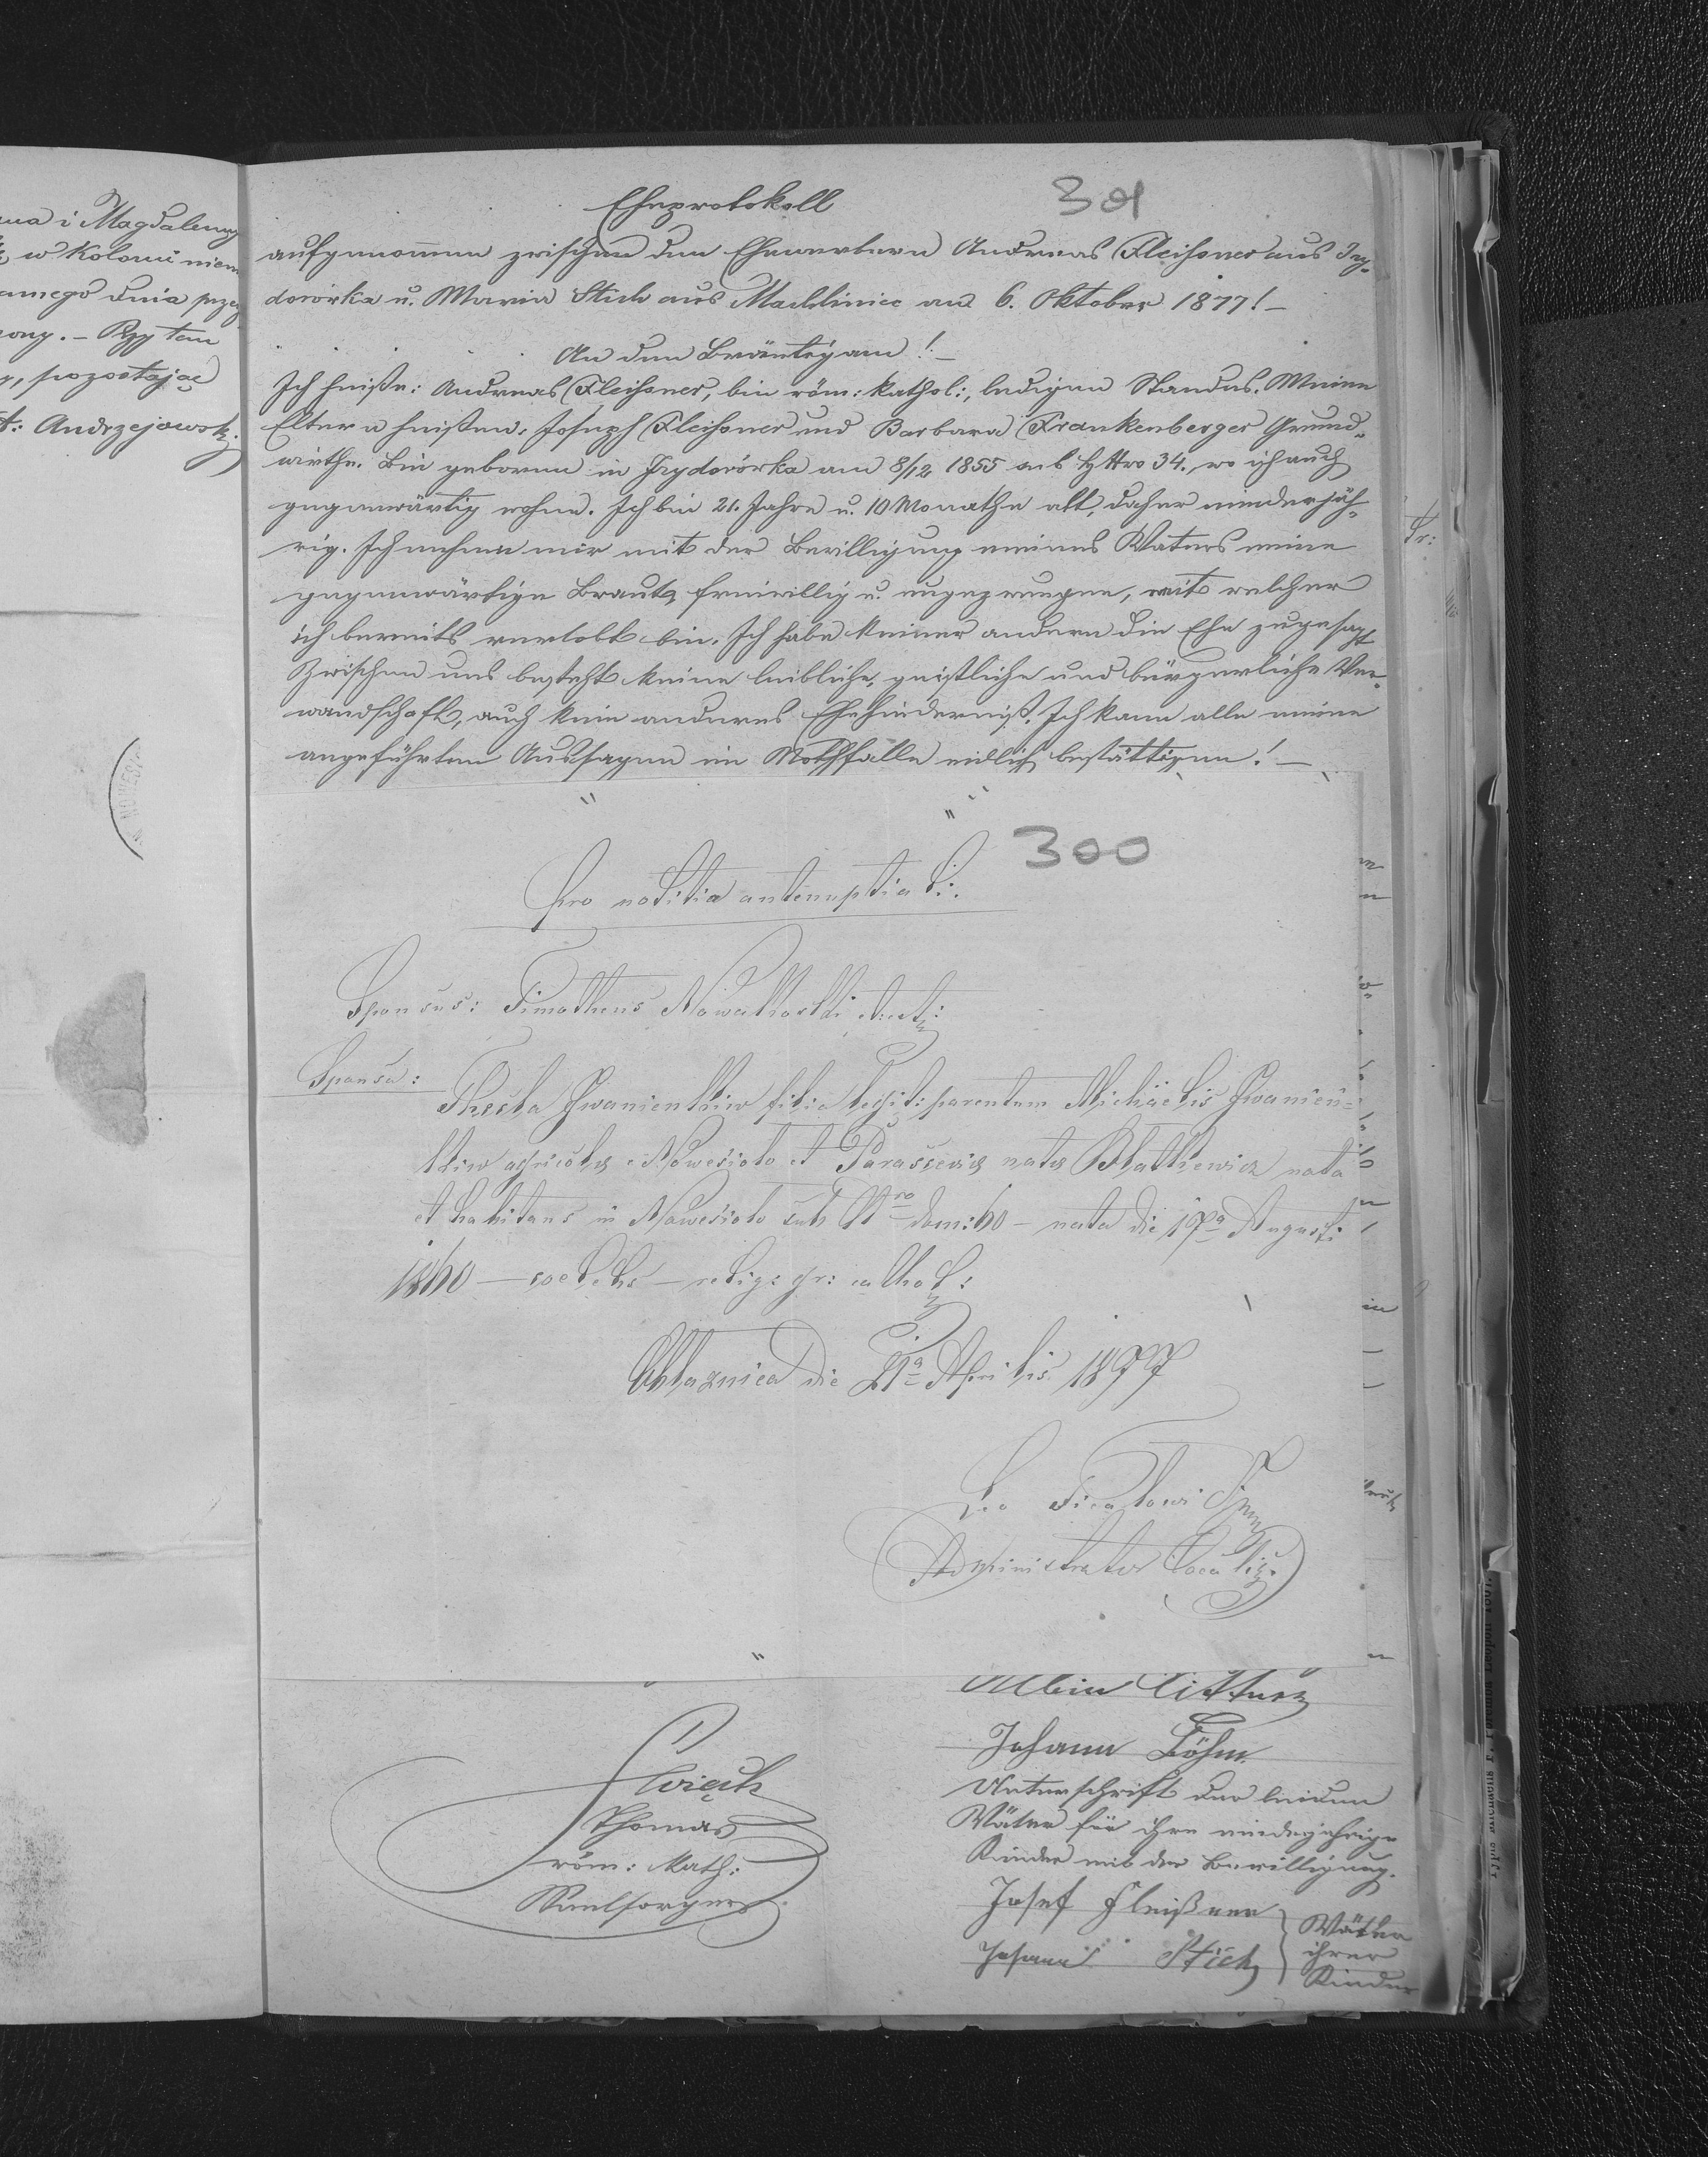 na i Magdaleny
w Kolonii niem
amego dnia prze
ony. – Przy tem
, pozostając
St: Andrzejowsk.
301
Eheprotokoll
aufgenommen zwischen den Ehewerbern Andreas Fleissner aus Izy-
dorówka u. Maria Stich aus Machliniec am 6. Oktober 1877! –
An den Bräutigam! –
Ich heiße: Andreas Fleissner, bin röm: kathol:, ledigen Standes. Meine
Eltern heißen: Joseph Fleissner und Barbara Frankenberger Grund-
wirthe. Bin geboren in Izydorówka am 8/12 1855 sub HNro 34., wo ich auch
gegenwärtig wohne. Ich bin 21. Jahre u. 10 Monathe alt, daher minderjäh-
rig. Ich nehme mir mit der Bewilligung meines Vaters meine
gegenwärtige Braut, freiwillig u. ungezwungen, mit welcher
ich bereits verlobt bin. Ich habe keiner andern die Ehe zugesagt
Zwischen uns besteht keine leibliche, geistliche und bürgerliche Ver-
wandschaft, auch kein anderes Ehehinderniß. Ich kann alle meine
angeführten Aussagen im Nothfalle eidlich bestättigen! –
300
Pro notitia antenuptiali.
Sponsus: Timotheus Nowakowski etc etc:
Sponsa:
Thecla Iwanienkiw filia legit: parentum Michäelis Iwanien=
kiw agricola e Nowesioło et Parascevia nata Blatkiewicz nata
et habitans in Nowesioło sub Nro dom: 60 – nata die 17a Augusti
1860 – coelebs – relig: gr: cathol:
Obłaznica die 21a Aprilis 1877
Leo
Administrator Local:
Albin Littner
Johann Böhm
Unterschrift der beiden
Väter für ihre minderjährige
Kinder mit der Bewilligung.
Josef Fleißner
Johann Stich
Väter
ihrer
Kinder
Ćwięk
Thomas
röm: Kath:
Seelsorger